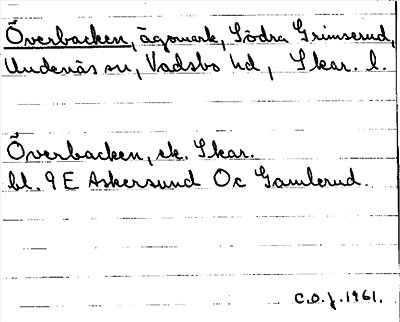 Överbacken, ägomark, Södra Grimserud,
Undenäs sn, Vadsbo hd, Skar. l.
Överbacken, ek. Skar.
bl. 9 E Askersund Oc Gamlerud.
C.O.J. 1961.